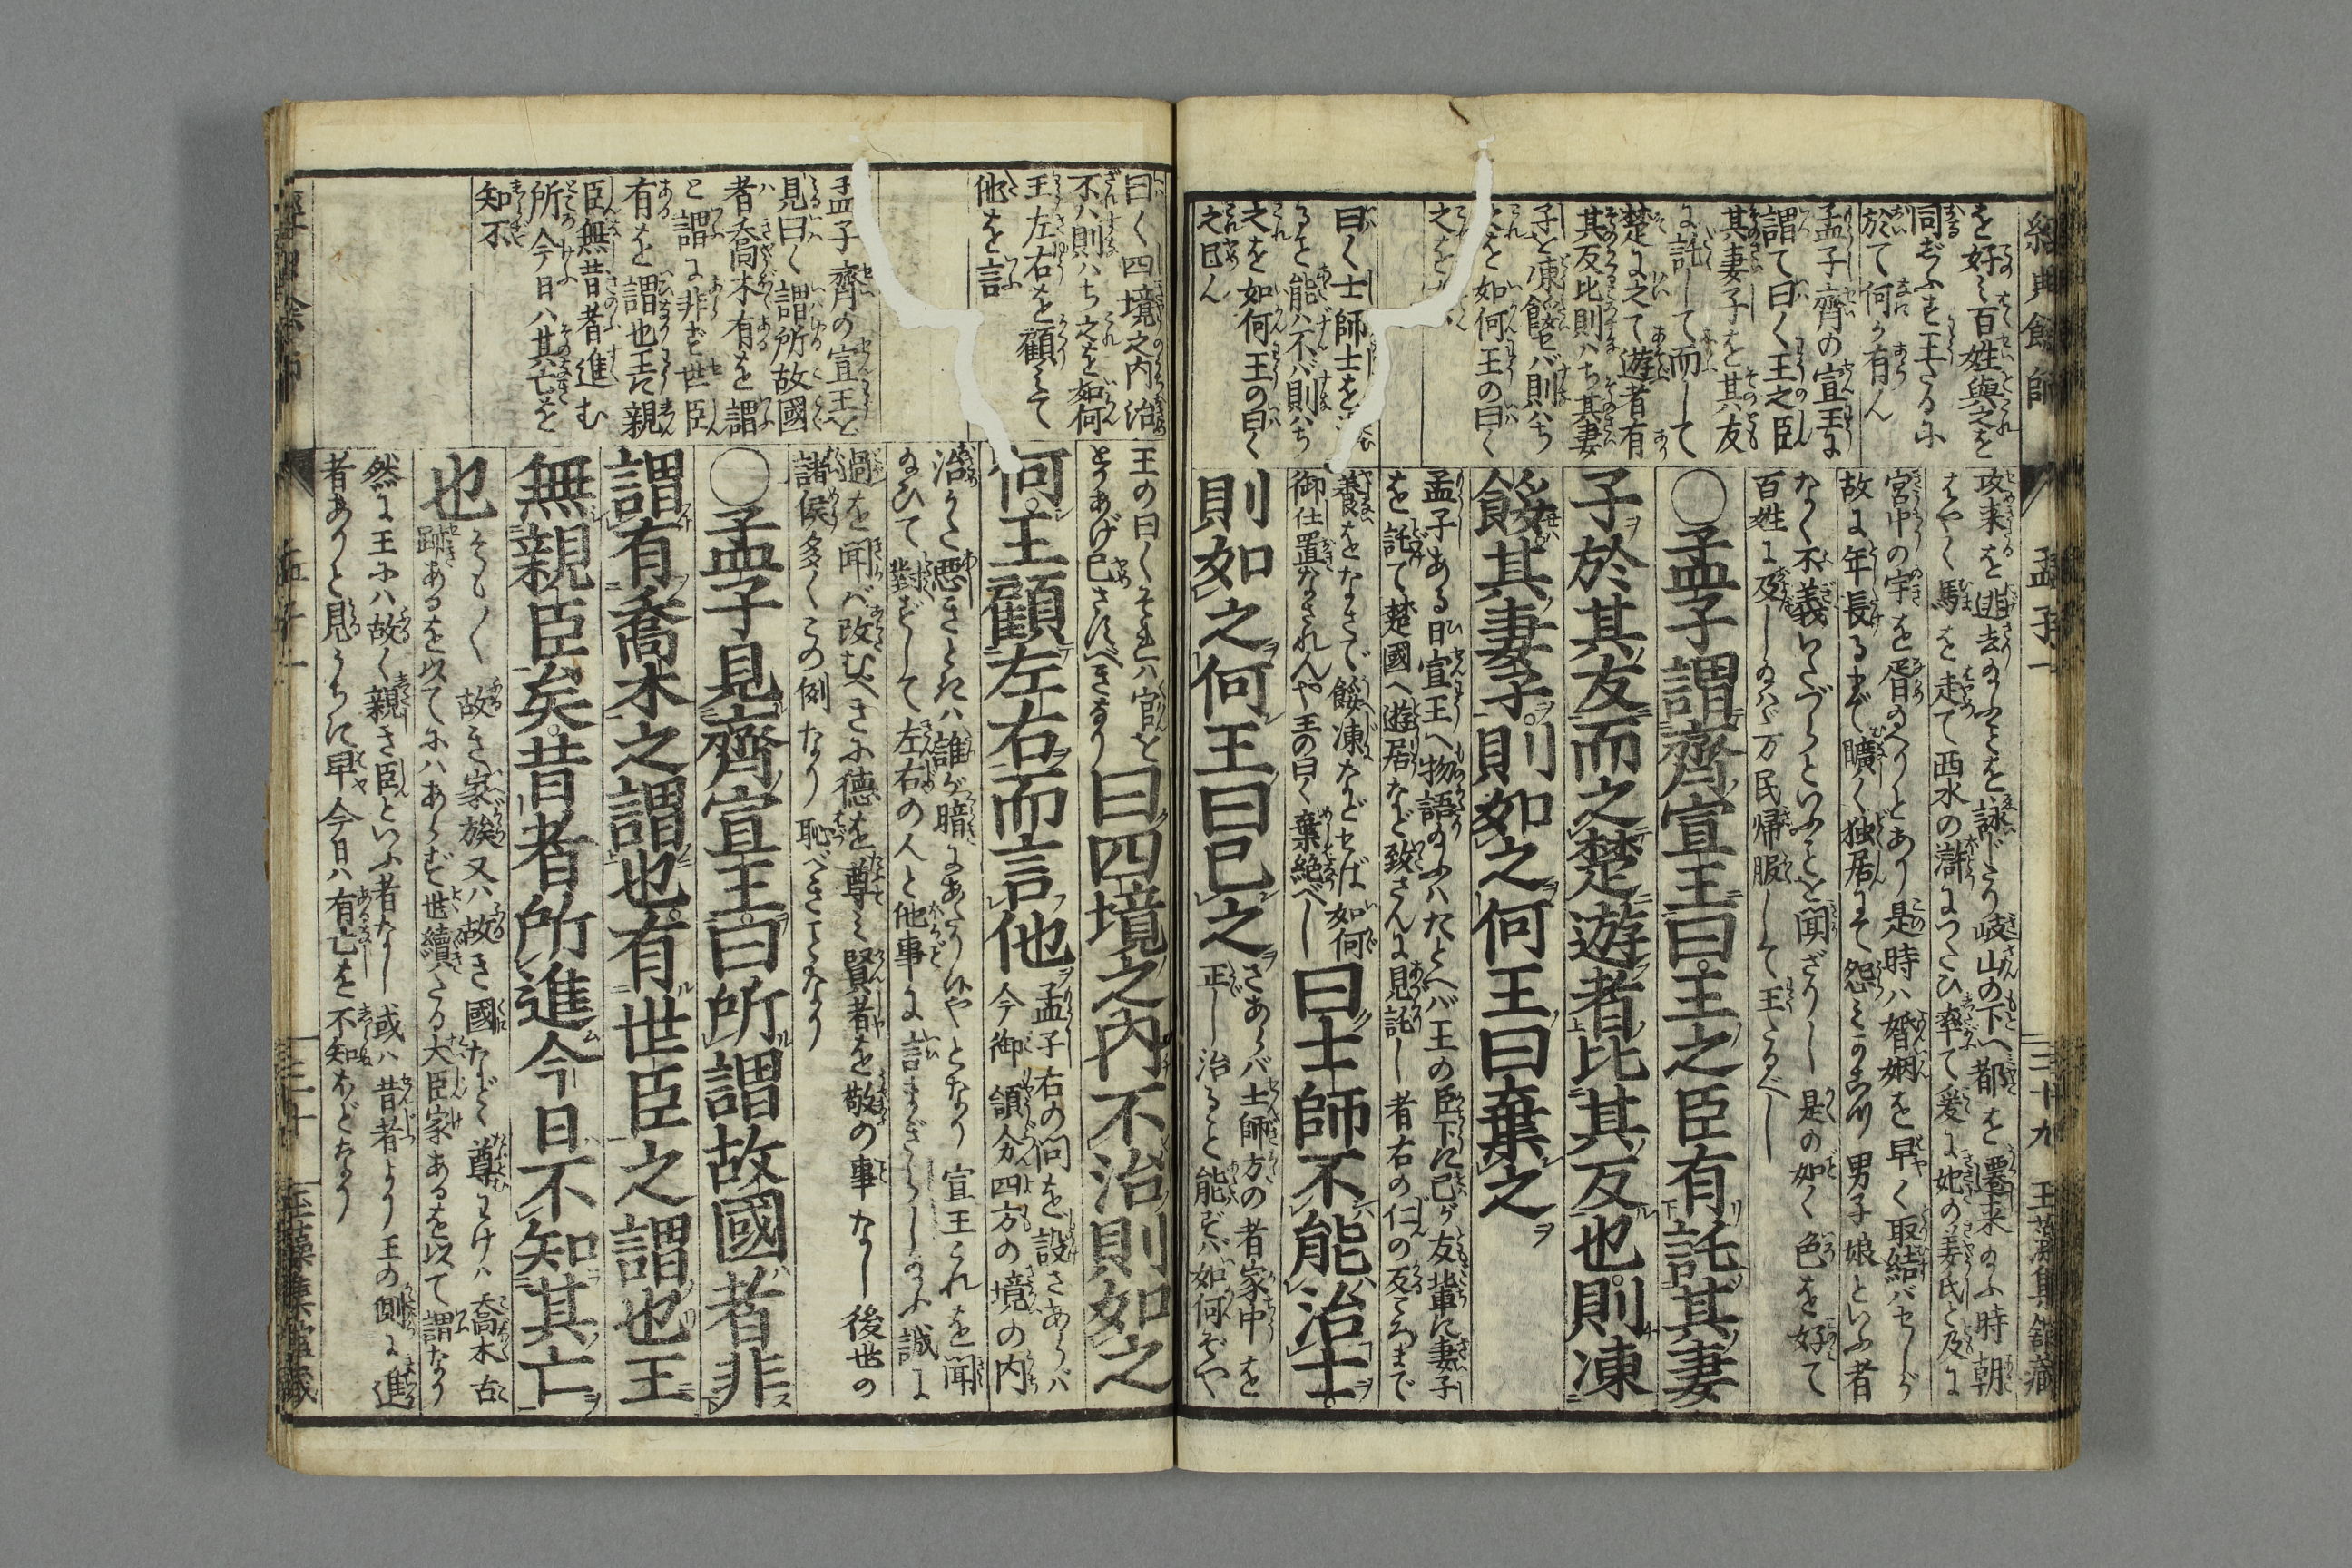 經典餘師
孟子一
三十九
玉藻集館藏
を好で百姓與之を
同ぢふせ王たるに
於て何か有ん
孟子齊の宣王に
謂て曰く王之臣
其妻子を其友
に託して而して
楚に之て遊者有
其反比則ハち其妻
子と凍餒セバ則ハち
之を如何王の曰く
之を
曰く士師士を
ると能ハ不バ則ハち
之を如何王の曰く
之已ん
攻来を迯去のふとを詠じたり岐山の下へ都を遷来のふ時朝
はやく馬を走て西水の滸につたひ率て爰に妃の姜氏と及に
宮中の宇を胥のへりとあり是時ハ婚姻を早く取結バセしが
故に年長るまで曠く独居にそ怨ミのある男子娘といふ者
なく不義いたづらといふことを聞ざりし是の如く色を好て
百姓に及しのバゞ万民帰服して王たるべし
〇孟子謂齊宣王曰王之臣有託其妻
子於其友而之楚遊者比其反也則凍
餒其妻子則如之何王曰棄之
孟子ある日宣王へ物語のふハたとヘバ王の臣下に己が友輩に妻子
を託て楚國へ遊居など致さんに見託し者右の仁の反ころまで
養をなさで餒凍などせば如何
御仕置なされんや王の曰く棄絶べし
曰士師不能治士
則如之何王曰已之
さあらバ士師方の者家中を
正し治ると能ずバ如何ぞや
曰く四境之内治
不ハ則ハち之を如何
王左右を顧ミて
他を言
孟子齊の宣王を
見曰く謂所故國
者喬木有を謂
と謂に非ず世臣
有を謂也王に親
臣無昔者進む
所今日ハ其亡を
知不
王の曰くそれハ官を
とりあげ已さすべきなり
曰四境之内不治則如之
何王顧左右而言他
孟子右の問を設さあらバ
今御領分四方の境の内
治らた悪きときハ誰が暗にあたり候やとなり宣王これを聞
なひて對ずして左右の人と他事に言まぎらしのふ誠に
過を聞バ改むべきに徳を尊ミ賢者を敬の事なし後世の
諸侯多くこの例なり恥べきことなり
〇孟子見齊宣王曰所謂故國者非
謂有喬木之謂也有世臣之謂也王
無親臣矣昔者所進今日不知其亡
也
そも〱故き家族又ハ故き國など尊きわけハ喬木古
跡あるを以てにハあらず世續たる大臣家あるを以て謂なり
然に王にハ故く親き臣といふ者なし或ハ昔者より王の側に進
者ありと見うちに早今日ハ有亡を不知ほどなり
孟子一
三十九